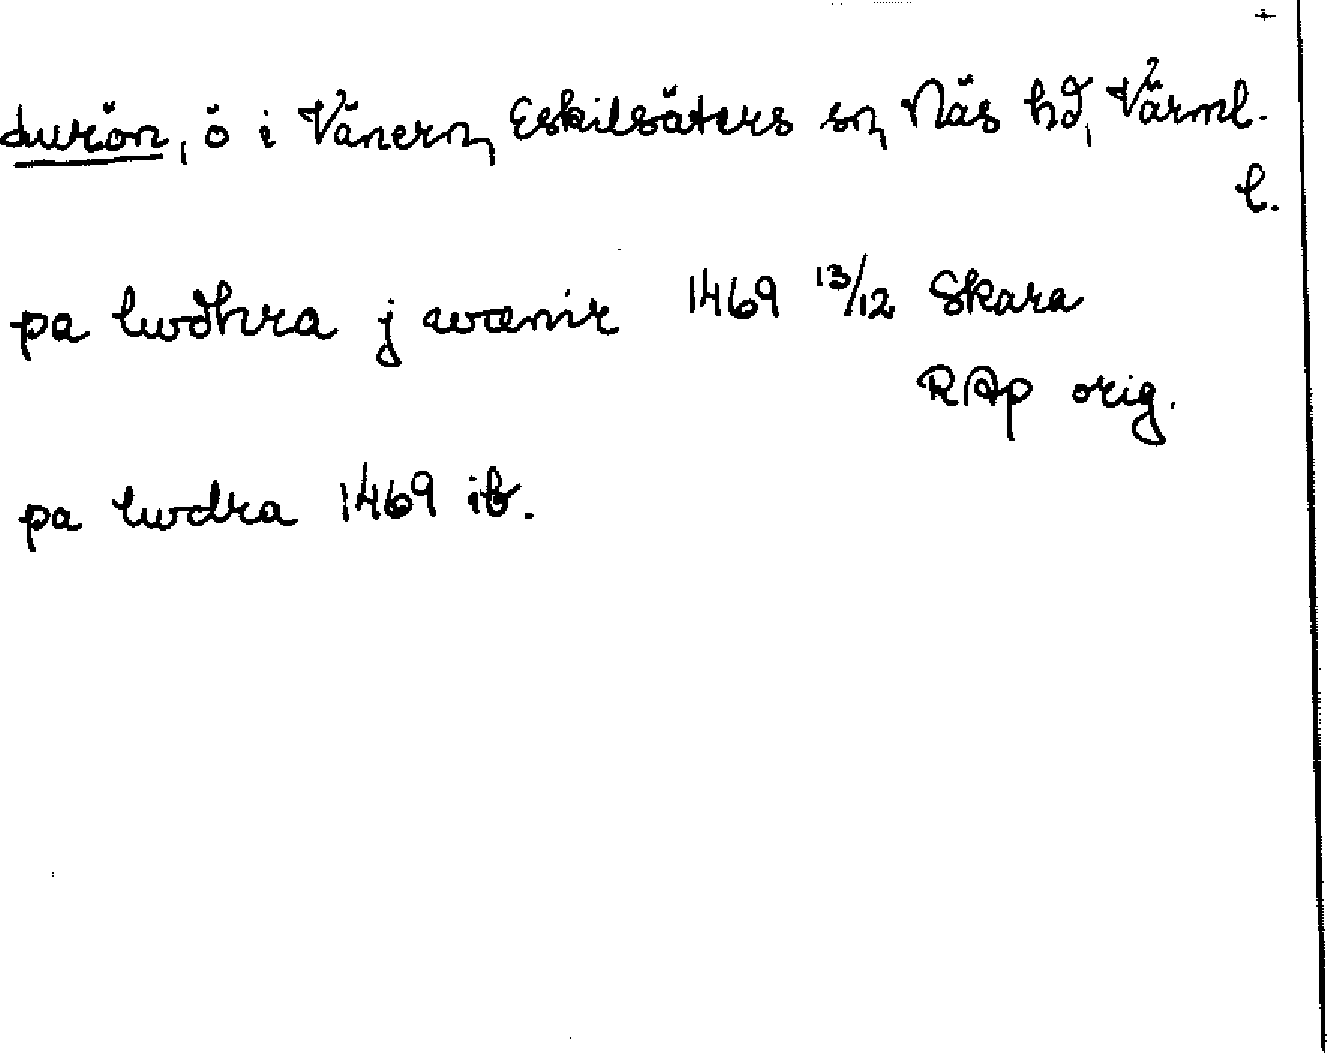 Lurön, ö i Vänern, Eskilsäters sn, Näs hd, Värml.
l.
pa lwdhra j wænir 1469 13/12 Skara
RAp orig.
pa lwdra 1469 ib.